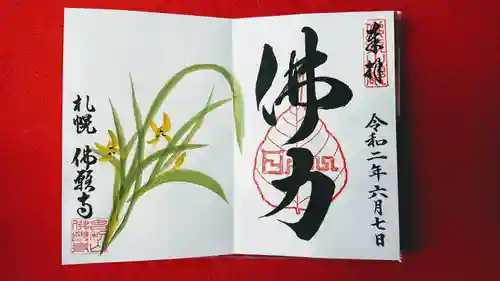 奉拝
佛力
令和二年六月七日
札幌
佛願寺